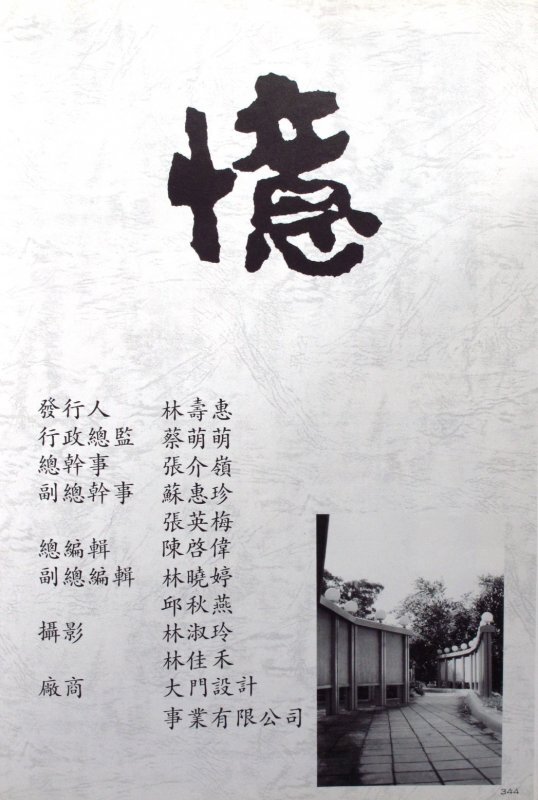 憶
發行人 林壽惠
行政總監 蔡萌萌
總幹事 張介嶺
副總幹事 蘇惠珍
張英梅
總編輯 陳啓偉
副總編輯 林曉婷
邱秋燕
攝影 林淑玲
林佳禾
廠商 大門設計
事業有限公司
344